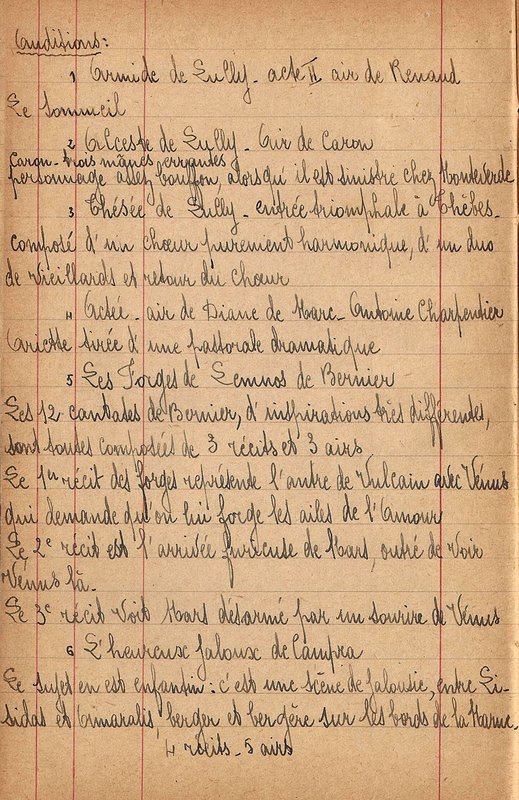 Auditions:
1 Armide de Lully - acte II air de Renaud
Le sommeil
2 Alceste de Lully - Air de Caron
Caron - trois mânes errantes
personnage assez bouffon, alors qu'il est sinistre chez Monteverde
3 Thésée de Lully - entrée triomphale à Thèbes -
composé d'un chœur purement harmonique, d'un duo
de vieillards et retour du chœur
4 Actée - air de Diane de Marc-Antoine Charpentier
Ariette tirée d'une pastorale dramatique
5 Les Forges de Lemnos de Bernier -
Les 12 cantates de Bernier, d'inspirations très différentes,
sont toutes composées de 3 récits et 3 airs
Le 1er récit des forges représente l'antre de Vulcain avec Vénus
qui demande qu'on lui forge les ailes de l'Amour
Le 2e récit est l'arrivée furieuse de Mars, outré de voir
Vénus là.
Le 3e récit voit Mars désarmé par un sourire de Vénus
6 L'heureux Jaloux de Campra
Le sujet en est enfantin : c'est une scène de jalousie, entre Li-
sidas et Amaralis, berger et bergère sur les bords de la Marne.
4 récits - 5 airs